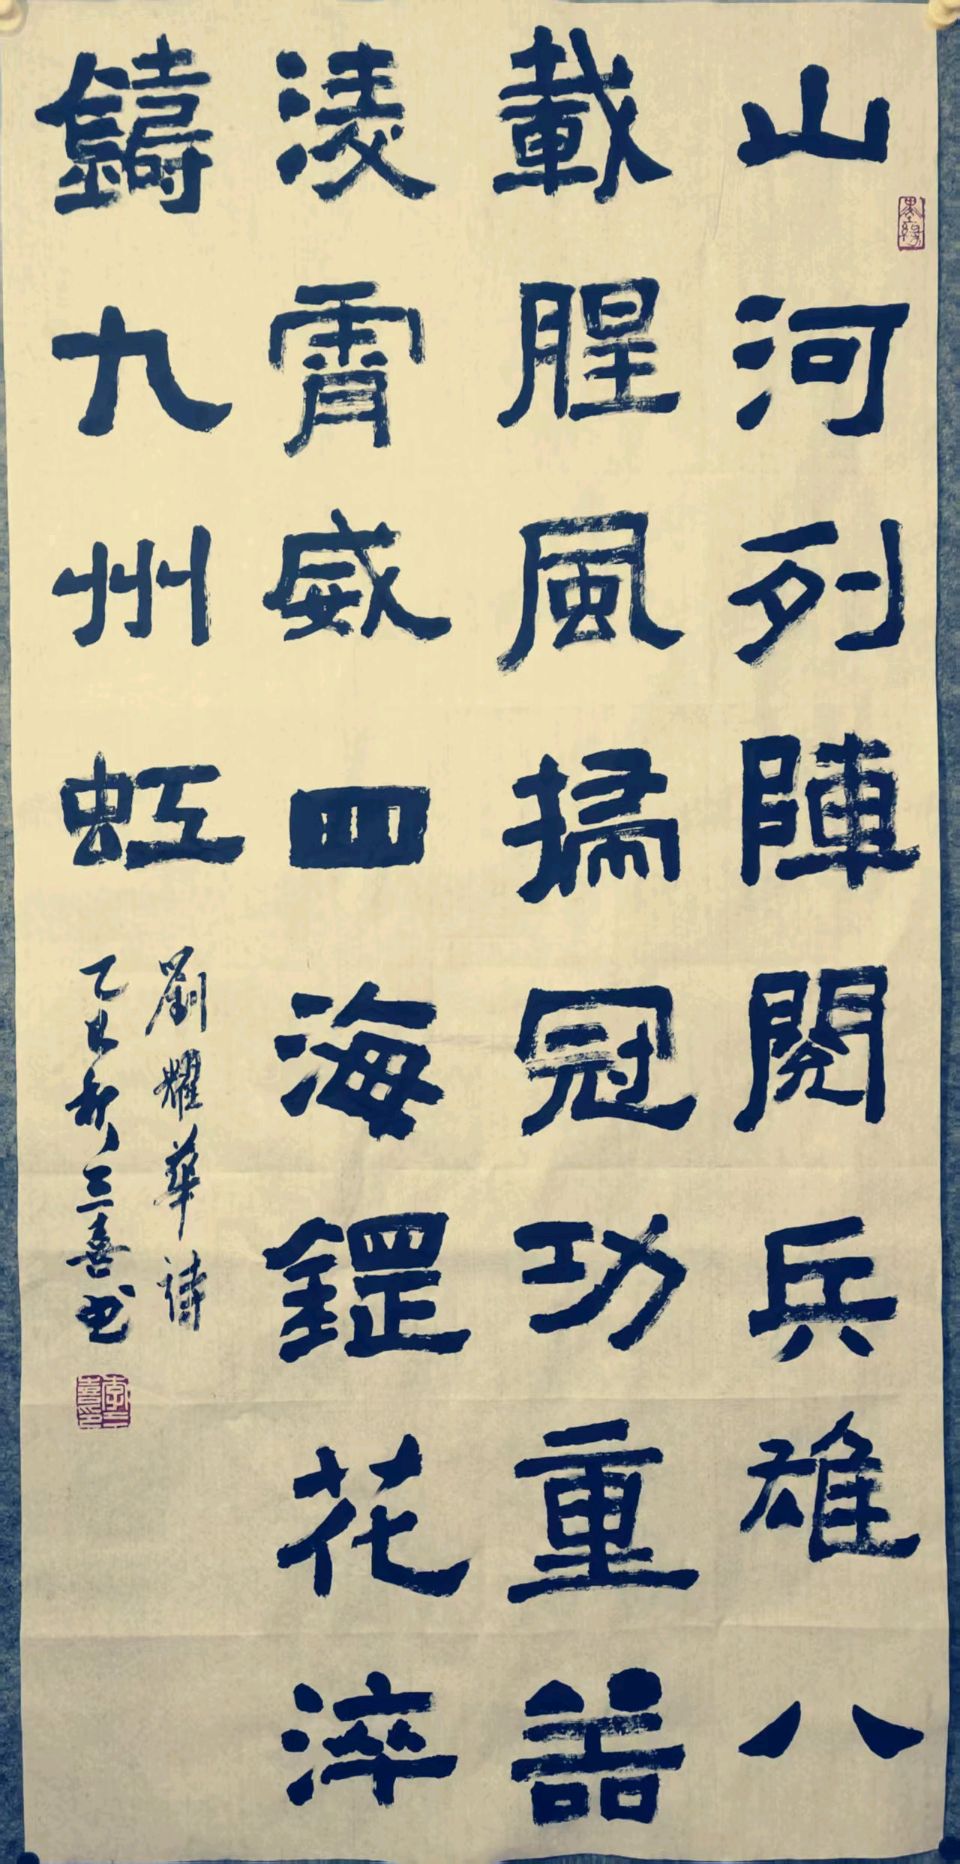 山河列陣閱兵雄八
載腥風掃冠功重器
淩霄威四海鋼花淬
鑄九州虹
劉耀華詩
乙巳秋三喜书
墨緣